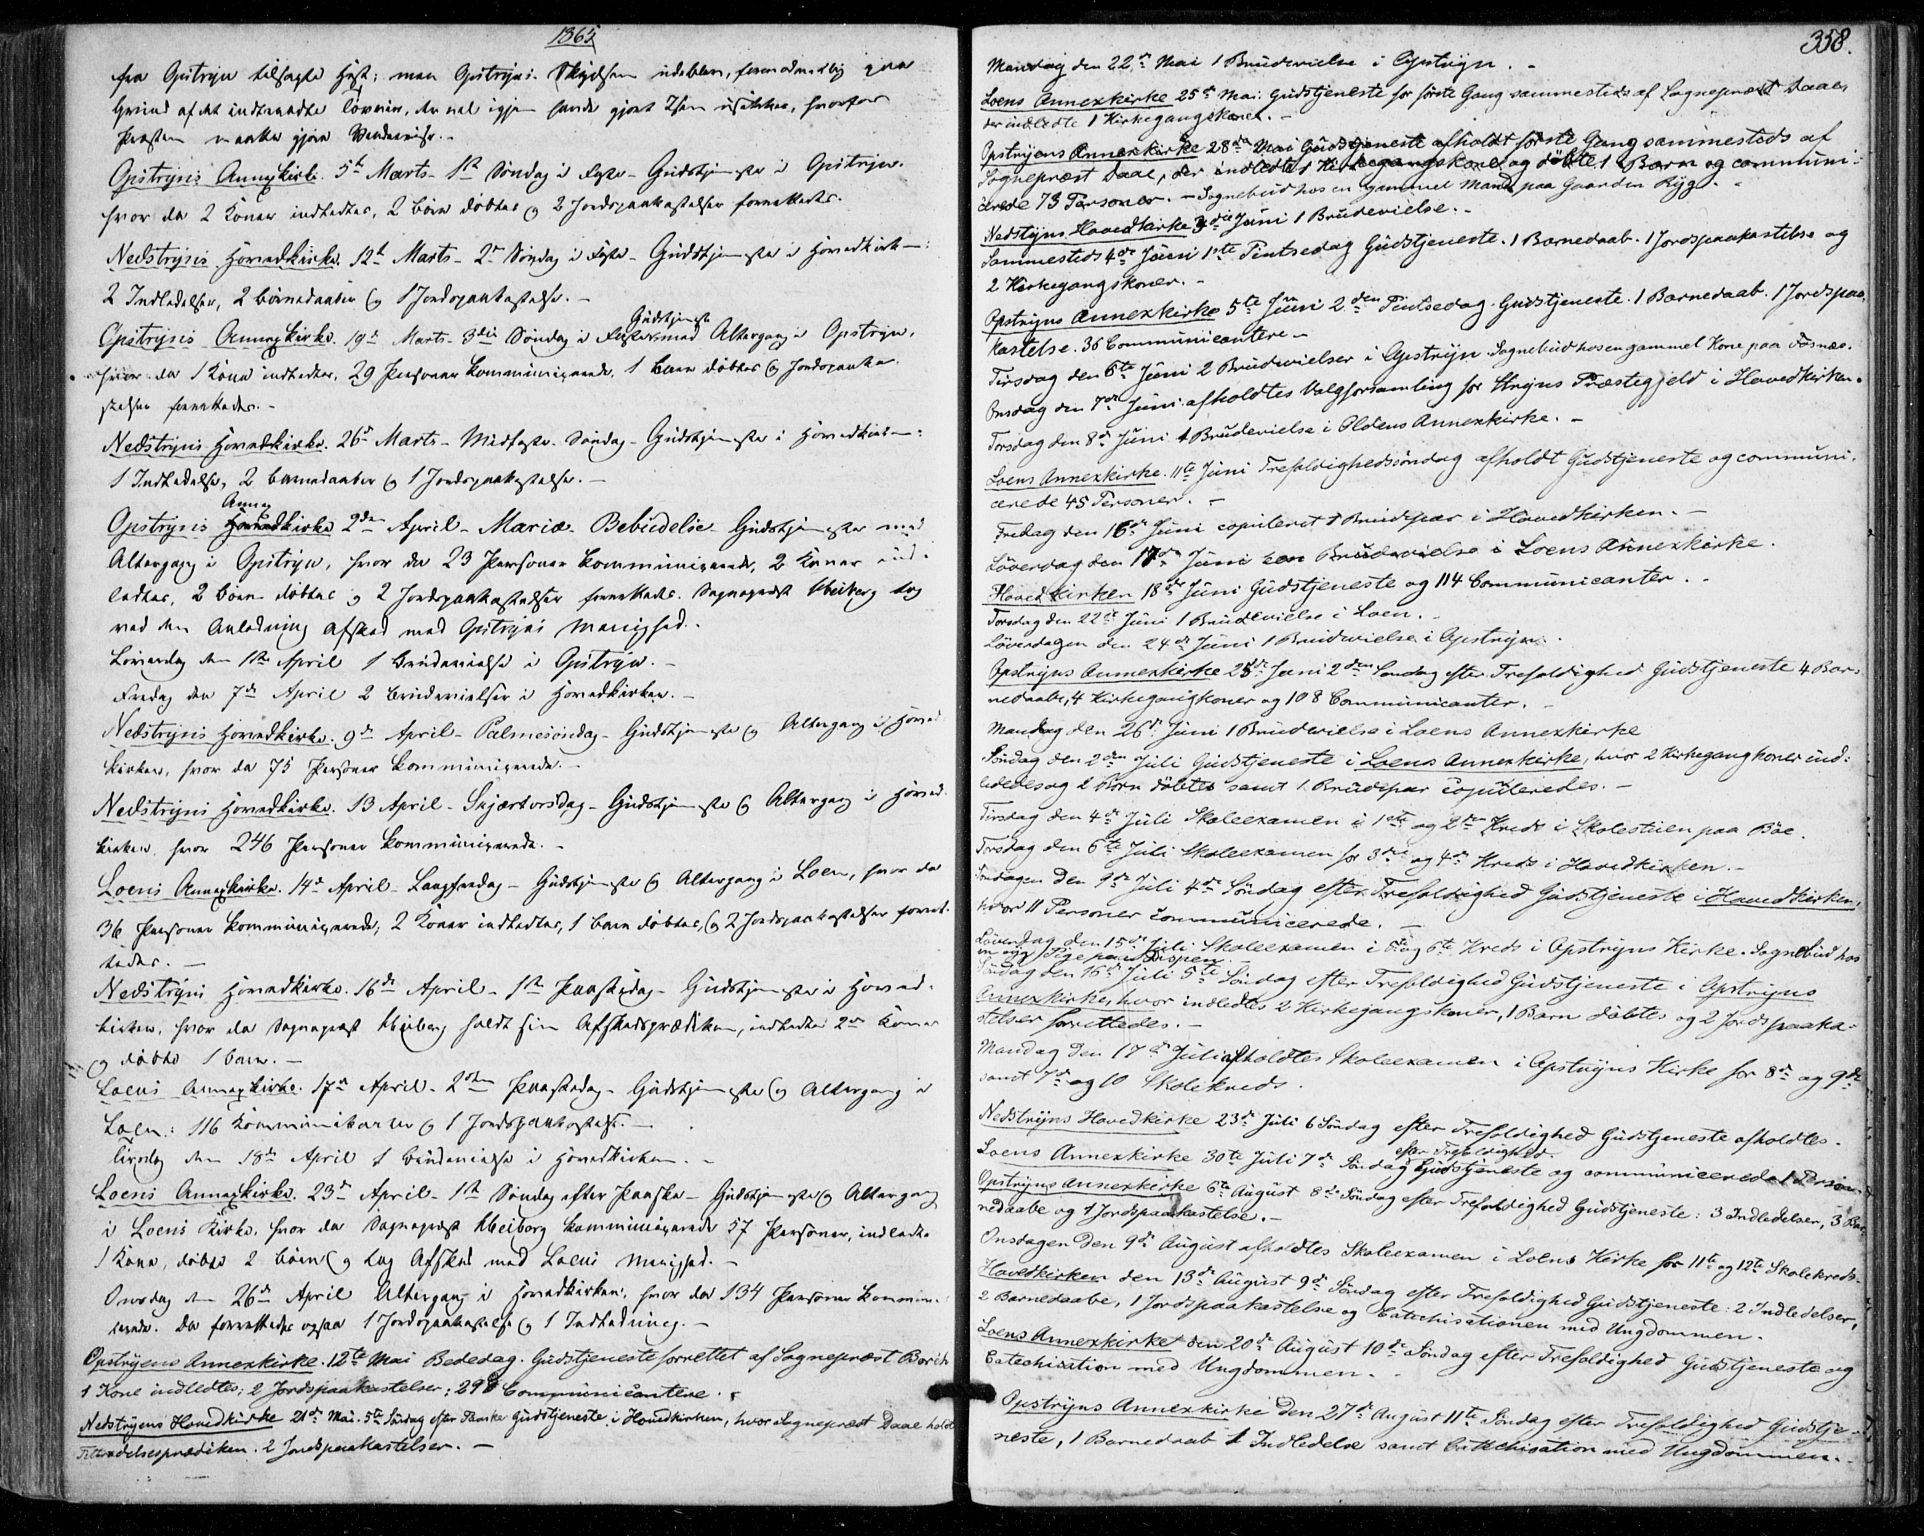 1865
fra Opstryn tilsagte Hest; men Opstryns Skydsen udeblev, formodentlig paa
Grund af det indtraadte Tøveir, der vel igjen havde gjort Isen usikker, hvorfor
Præsten maatte gjøre Venderreise.-
Opstryns Annexkirke. 5te Marts - 1ste Søndag i Faste - Gudstjeneste i Opstryn.
hvor der 2 Koner indledtes, 2 Børn døbtes og 2 Jordspaakastelser forrettedes.
Nedstryns Hovedkirke. 12te Marts - 2den Søndag i Faste - Gudstjeneste i Hovedkirken:
2 Indledelser, 2 Barnedaaber og 1 Jordspaakastelse.-
Opstryns Annexkirke. 19de Marts - 3die Søndag i Faste Gudstjeneste med Altergang i Opstryn,
hvor der 1 Kone indledtes, 29 Personer kommunicerede, 1 Barn døbtes og Jordspaaka-
stelser forrettedes.-
Nedstryns Hovedkirke. 26de Marts - Midfaste-Søndag - Gudstjeneste i Hovedkirken:
1 Indledelse, 2 Barnedaaber og 1 Jordspaakastelse.-
Annex
Opstryns Hovedkirke 2den April - Mariæ Bebudelse. Gudstjeneste med
Altergang i Opstryn, hvor der 23 Personer kommunicerede, 2 Koner ind-
ledtes, 2 Børn døbtes og 2 Jordspaakastelser forrettedes. Sognepræst Kleiberg tog
ved den Anledning Afsked med Opstryns Menighed.-
Løverdag den 1ste April 1 Brudevielse i Opstryn.-
Fredag den 7de April 2 Brudevielser i Hovedkirken.-
Nedstryns Hovedkirke. 9de April - Palmesøndag - Gudstjeneste og Altergang i Hoved-
kirken, hvor der 75 Personer kommunicerede.-
Nedstryns Hovedkirke. 13 April - Skjærtorsdag - Gudstjeneste og Altergang i Hoved-
kirken, hvor 246 Personer kommunicerede.-
Loens Annexkirke. 14de April - Langfredag - Gudstjeneste og Altergang i Loen, hvor der
36 Personer kommunicerede, 2 Koner indledtes, 1 Barn døbtes, og 2 Jordspaakastelser forret-
tedes.-
Nedstryns Hovedkirke. 16de April - 1ste Paaskedag - Gudstjeneste i Hoved-
kirken, hvor der Sognepræst Kleiberg holdt sin Afskedsprædiken, indledte 2de Koner
og døbte 1 Barn.-
Loens Annexkirke. 17de April - 2den Paaskedag - Gudstjeneste og Altergang i
Loen: 116 Kommunikanter og 1 Jordspaakastelse.-
Tirsdag den 18de April 1 Brudevielse i Hovedkirken.-
Loens Annexkirke. 23de April - 1ste Søndag efter Paaske - Gudstjeneste og Altergang
i Loens Kirke, hvor der Sognepræst Kleiberg kommunicerede 57 Personer, indledte
1 Kone, døbte 2 Børn og tog Afsked med Loens Menighed.-
Onsdag den 26de April Altergang i Hovedkirken, hvor der 134 Personer kommuni-
cerede. Der forrettedes ogsaa 1 Jordspaakastelse og 1 Indledning.-
Opstryens Annexkirke. 12te Mai Bededag. Gudstjeneste forrettet af Sognepræst
1 Kone indledtes; 2 Jordspaakastelser; Communicantere.
Nedstryens Hovedkirke 21de Mai. 5te Søndag efter Paaske Gudstjeneste i Hovedkirken, hvor Sognepræst Daae holdt
Tiltrædelsesprædiken. 2 Jordspaakastelser.-
358.
Mandag den 22de Mai 1 Brudevielse i Opstryn.-
Loens Annexkirke 25de Mai: Gudstjeneste for første Gang sammesteds af Sognepræst Daae,
der indledte 1 Kirkegangskone.-
Opstryens Annexkirke 28de Mai Gudstjeneste afholdt første Gang sammesteds af
Sognepræst Daae, der indledte 1 Kirkegangskone og døbte 1 Barn og communi-
cerede 73 Personer.- Sognebud hos en gammel Mand paa Gaarden Ryg.-
Nedstryns Hovedkirke 3die Juni 1 Brudevielse.-
Sammesteds 4de Juni 1ste Pintsedag Gudstjeneste. 1 Barnedaab. 1 Jordspaakastelse og
2 Kirkegangskoner.-
Opstryns Annexkirke 5te Juni 2den Pintsedag. Gudstjeneste. 1 Barnedaab. 1 Jordspaa-
kastelse. 36 Communicantere-
Tirsdag den 6te Juni 2 Brudevielser i Opstryn. Sognebud hos en gammel Kone paa Fosnæs.
Onsdag den 7de Juni afholdtes Valgforsamling for Stryns Præstegjeld i Hovedkirken.
Torsdag den 8de Juni 1 Brudevielse i Oldens Annexkirke.-
Loens Annexkirke. 11te Juni Trefoldighedssøndag afholdt Gudstjeneste og communi-
cerede 45 Personer.-
Fredag den 16de Juni copuleret 1 Brudepar i Hovedkirken.-
Løverdag den 17de Juni een Brudevielse i Loens Annexkirke.
Hovedkirken 18de Juni Gudstjeneste og 114 Communicanter.-
Torsdag den 22de Juni 1 Brudevielse i Loen.-
Løverdagen den 24de Juni 1 Brudevielse i Opstryn.
Opstryns Annexkirke 25de Juni 2den Søndag efter Trefoldighed Gudstjeneste 4 Bar-
nedaabe, 4 Kirkegangkoner og 108 Communicanter.-
Mandag den 26de Juni 1 Brudevielse i Loens Annexkirke
Søndag den 2den Juli Gudstjeneste i Loens Annexkirke, hvor 2 Kirkegangkoner ind-
ledes og 2 Børn døbtes samt 1 Brudepar copuleredes.-
Tirsdag den 4de Juli Skoleexamen i 1ste og 2den Kreds i Skolestuen paa Bøe.
Torsdag den 6te Juli Skoleexamen for 3die og 4de Kreds i Hovedkirken.-
Søndagen den 9de Juli 4de Søndag efter Trefoldighed Gudstjeneste i Hovedkirken,
hvor 11 Personer communicerede.-
Løverdag den 15de Juli Skoleexamen i 5te og 6te Kreds i Opstryns Kirke. Sognebud hos
en syg Pige paa
Søndag den 16de Juli 5te Søndag efter Trefoldighed Gudstjeneste i Opstryns
Annexkirke, hvor indledtes 2 Kirkegangskoner, 1 Barn døbtes og 2 Jordspaaka-
stelser forrettedes.-
Mandag den 17de Juli afholdtes Skoleexamen i Opstryns Kirke for 8de og 9de
samt 7de og 10 Skolekreds.
Nedstryns Hovedkirke 23de Juli 6 Søndag efter Trefoldighed Gudstjeneste afholdtes.
efter Trefoldighed
Loens Annexkirke 30te Juli 7de Søndag Gudstjeneste og communicerede 1 Person.
Opstryns Annexkirke 6te August 8de Søndag efter Trefoldighed Gudstjeneste: 3 Indledelser, 3 Bar-
nedaabe og 1 Jordspaakastelse.-
Onsdagen den 9de August afholdtes Skoleexamen i Loens Kirke for 11te og 12te Skolekreds.
Hovedkirken den 13de August 9de Søndag efter Trefoldighed Gudstjeneste: 2 Indledelser,
2 Barnedaabe, 1 Jordspaakastelse og Catechisationen med Ungdommen.-
Loens Annexkirke den 20de August 10de Søndag efter Trefoldighed Gudstjeneste og
Catechisation med Ungdommen.-
Opstryns Annexkirke den 27de August 11te Søndag efter Trefoldighed Gudstje-
neste, 1 Barnedaab 1 Indledelse samt Catechisation med Ungdommen.-